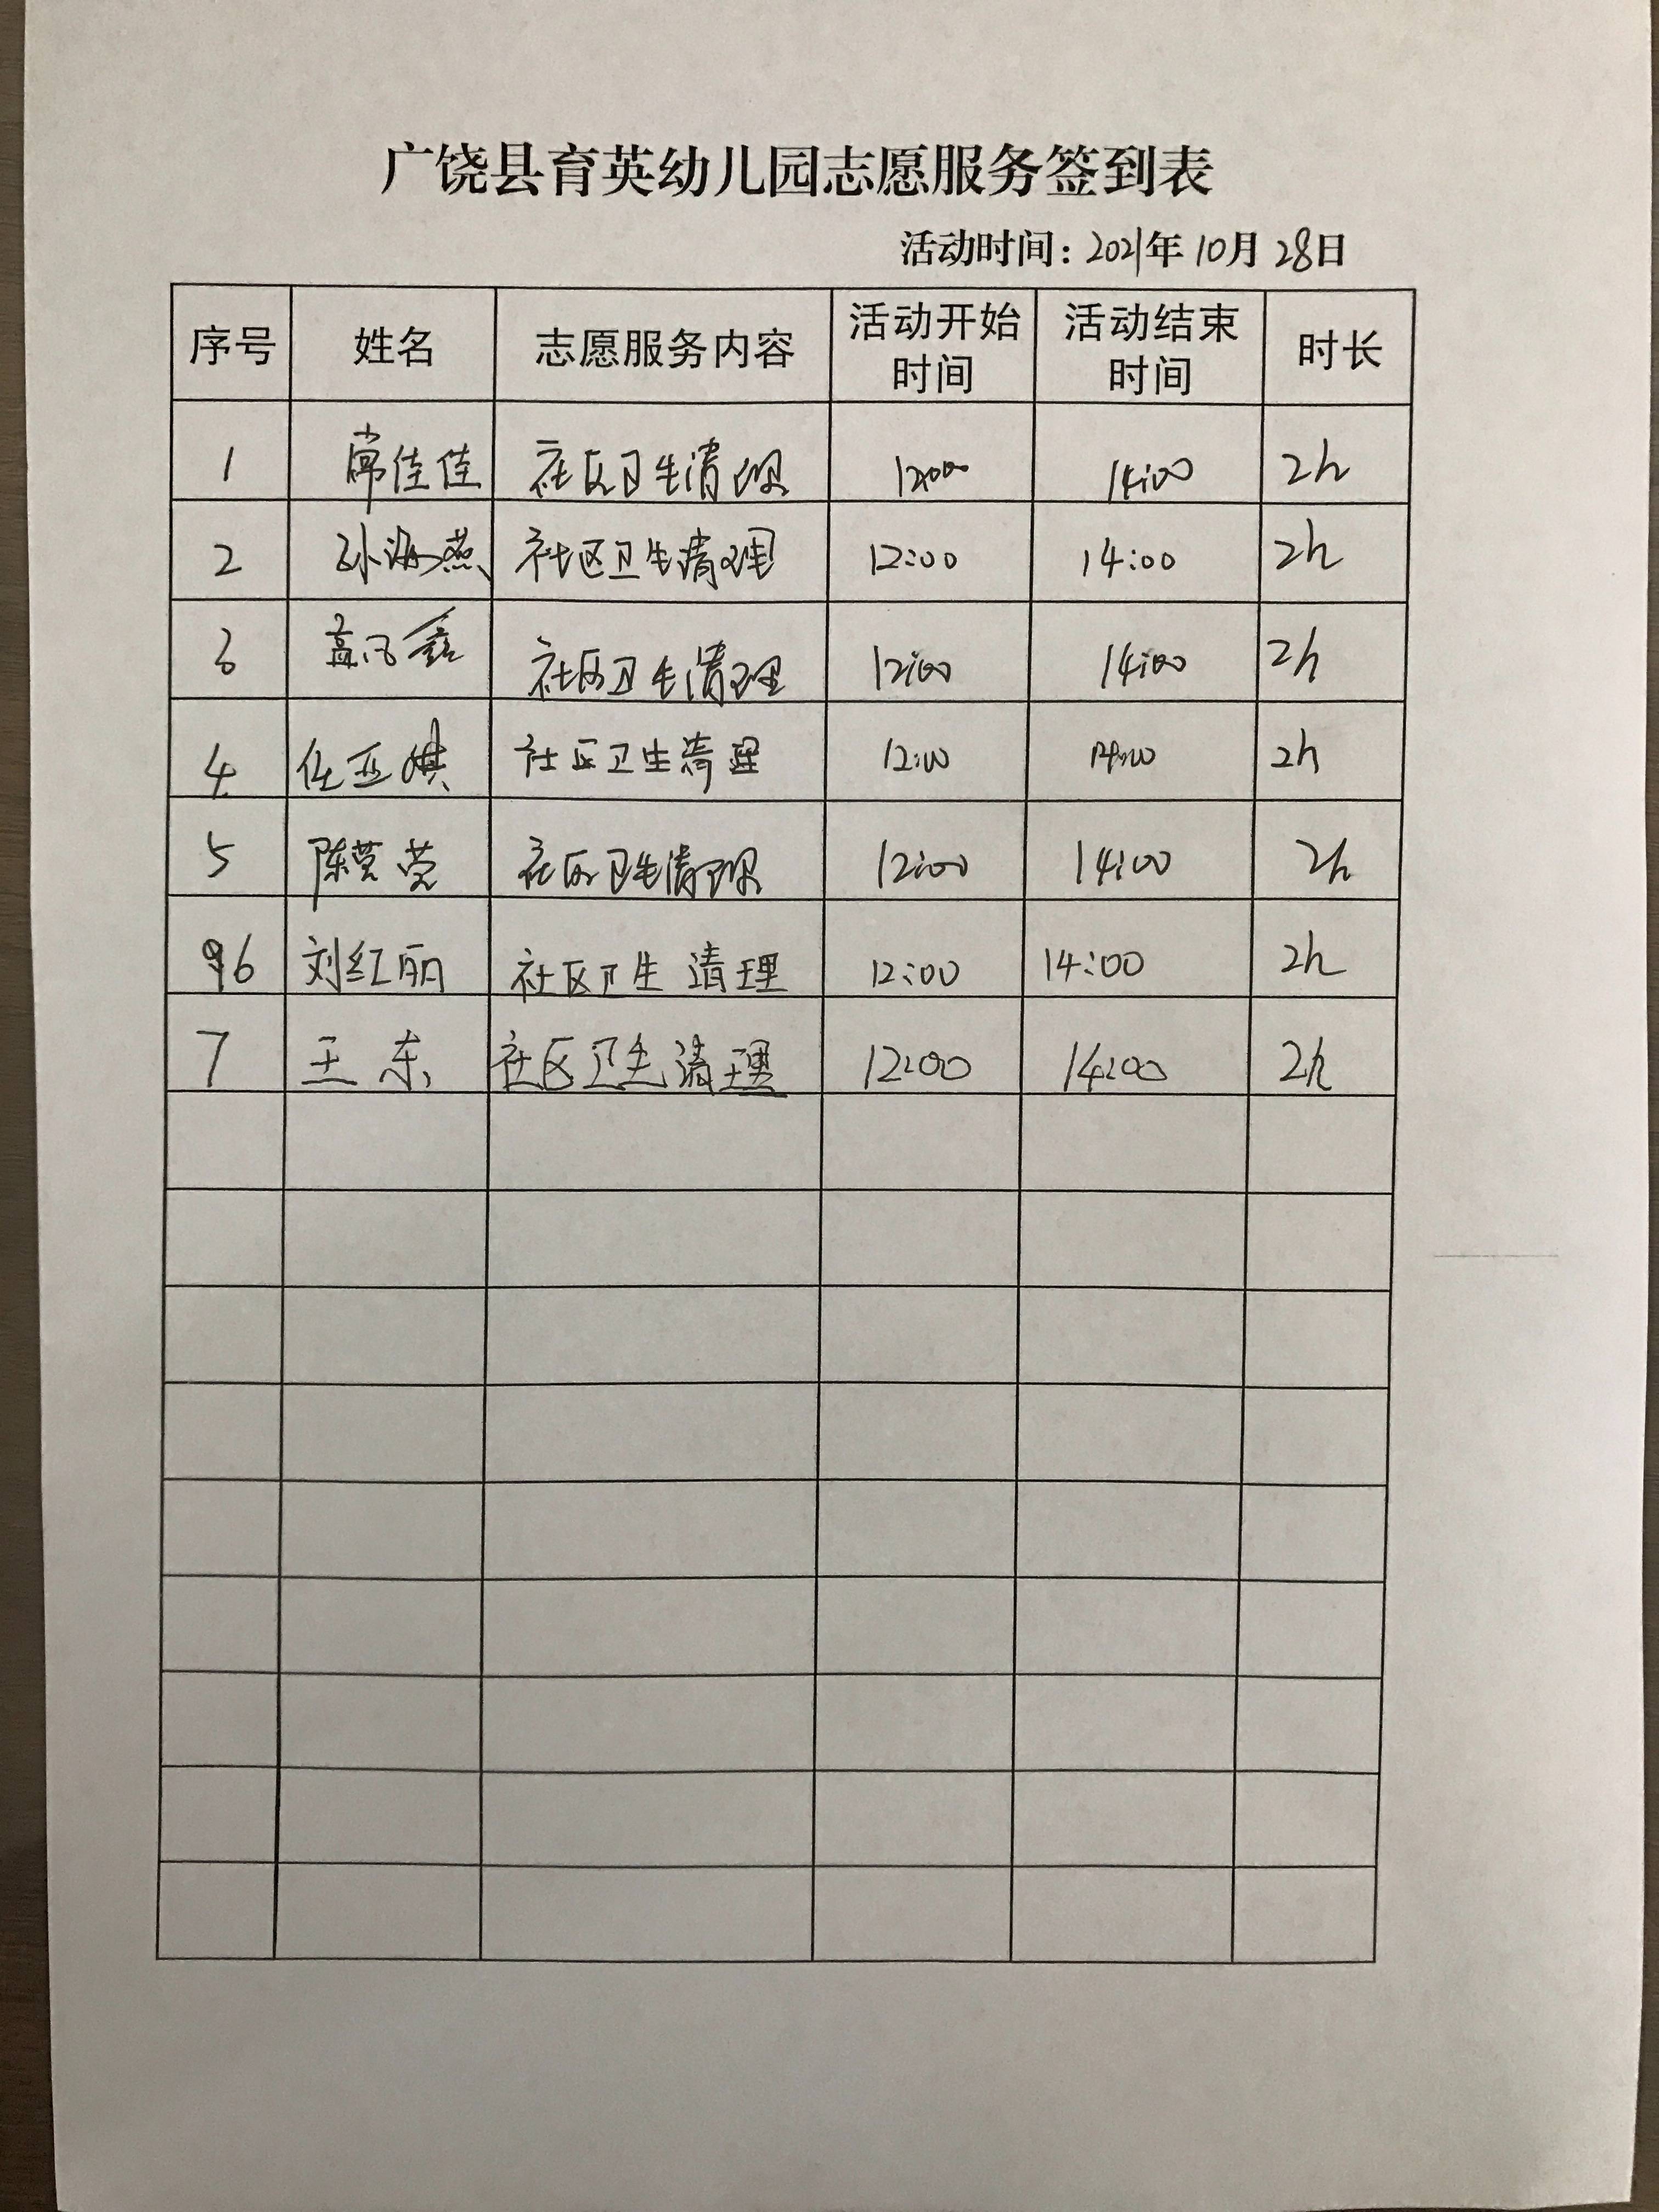 广饶县育英幼儿园志愿服务签到表
活动时间：2021年10月28日
序号 姓名 志愿服务内容 活动开始时间 活动结束时间 时长
1 常佳佳 社区卫生清理 12:00 14:00 2h
2 孙海燕 社区卫生清理 12:00 14:00 2h
3 社区卫生清理 12:00 14:00 2h
4 任亚琪 社区卫生清理 12:00 14:00 2h
5 陈莹莹 社区卫生清理 12:00 14:00 2h
6 刘红丽 社区卫生清理 12:00 14:00 2h
7 王东 社区卫生清理 12:00 14:00 2h